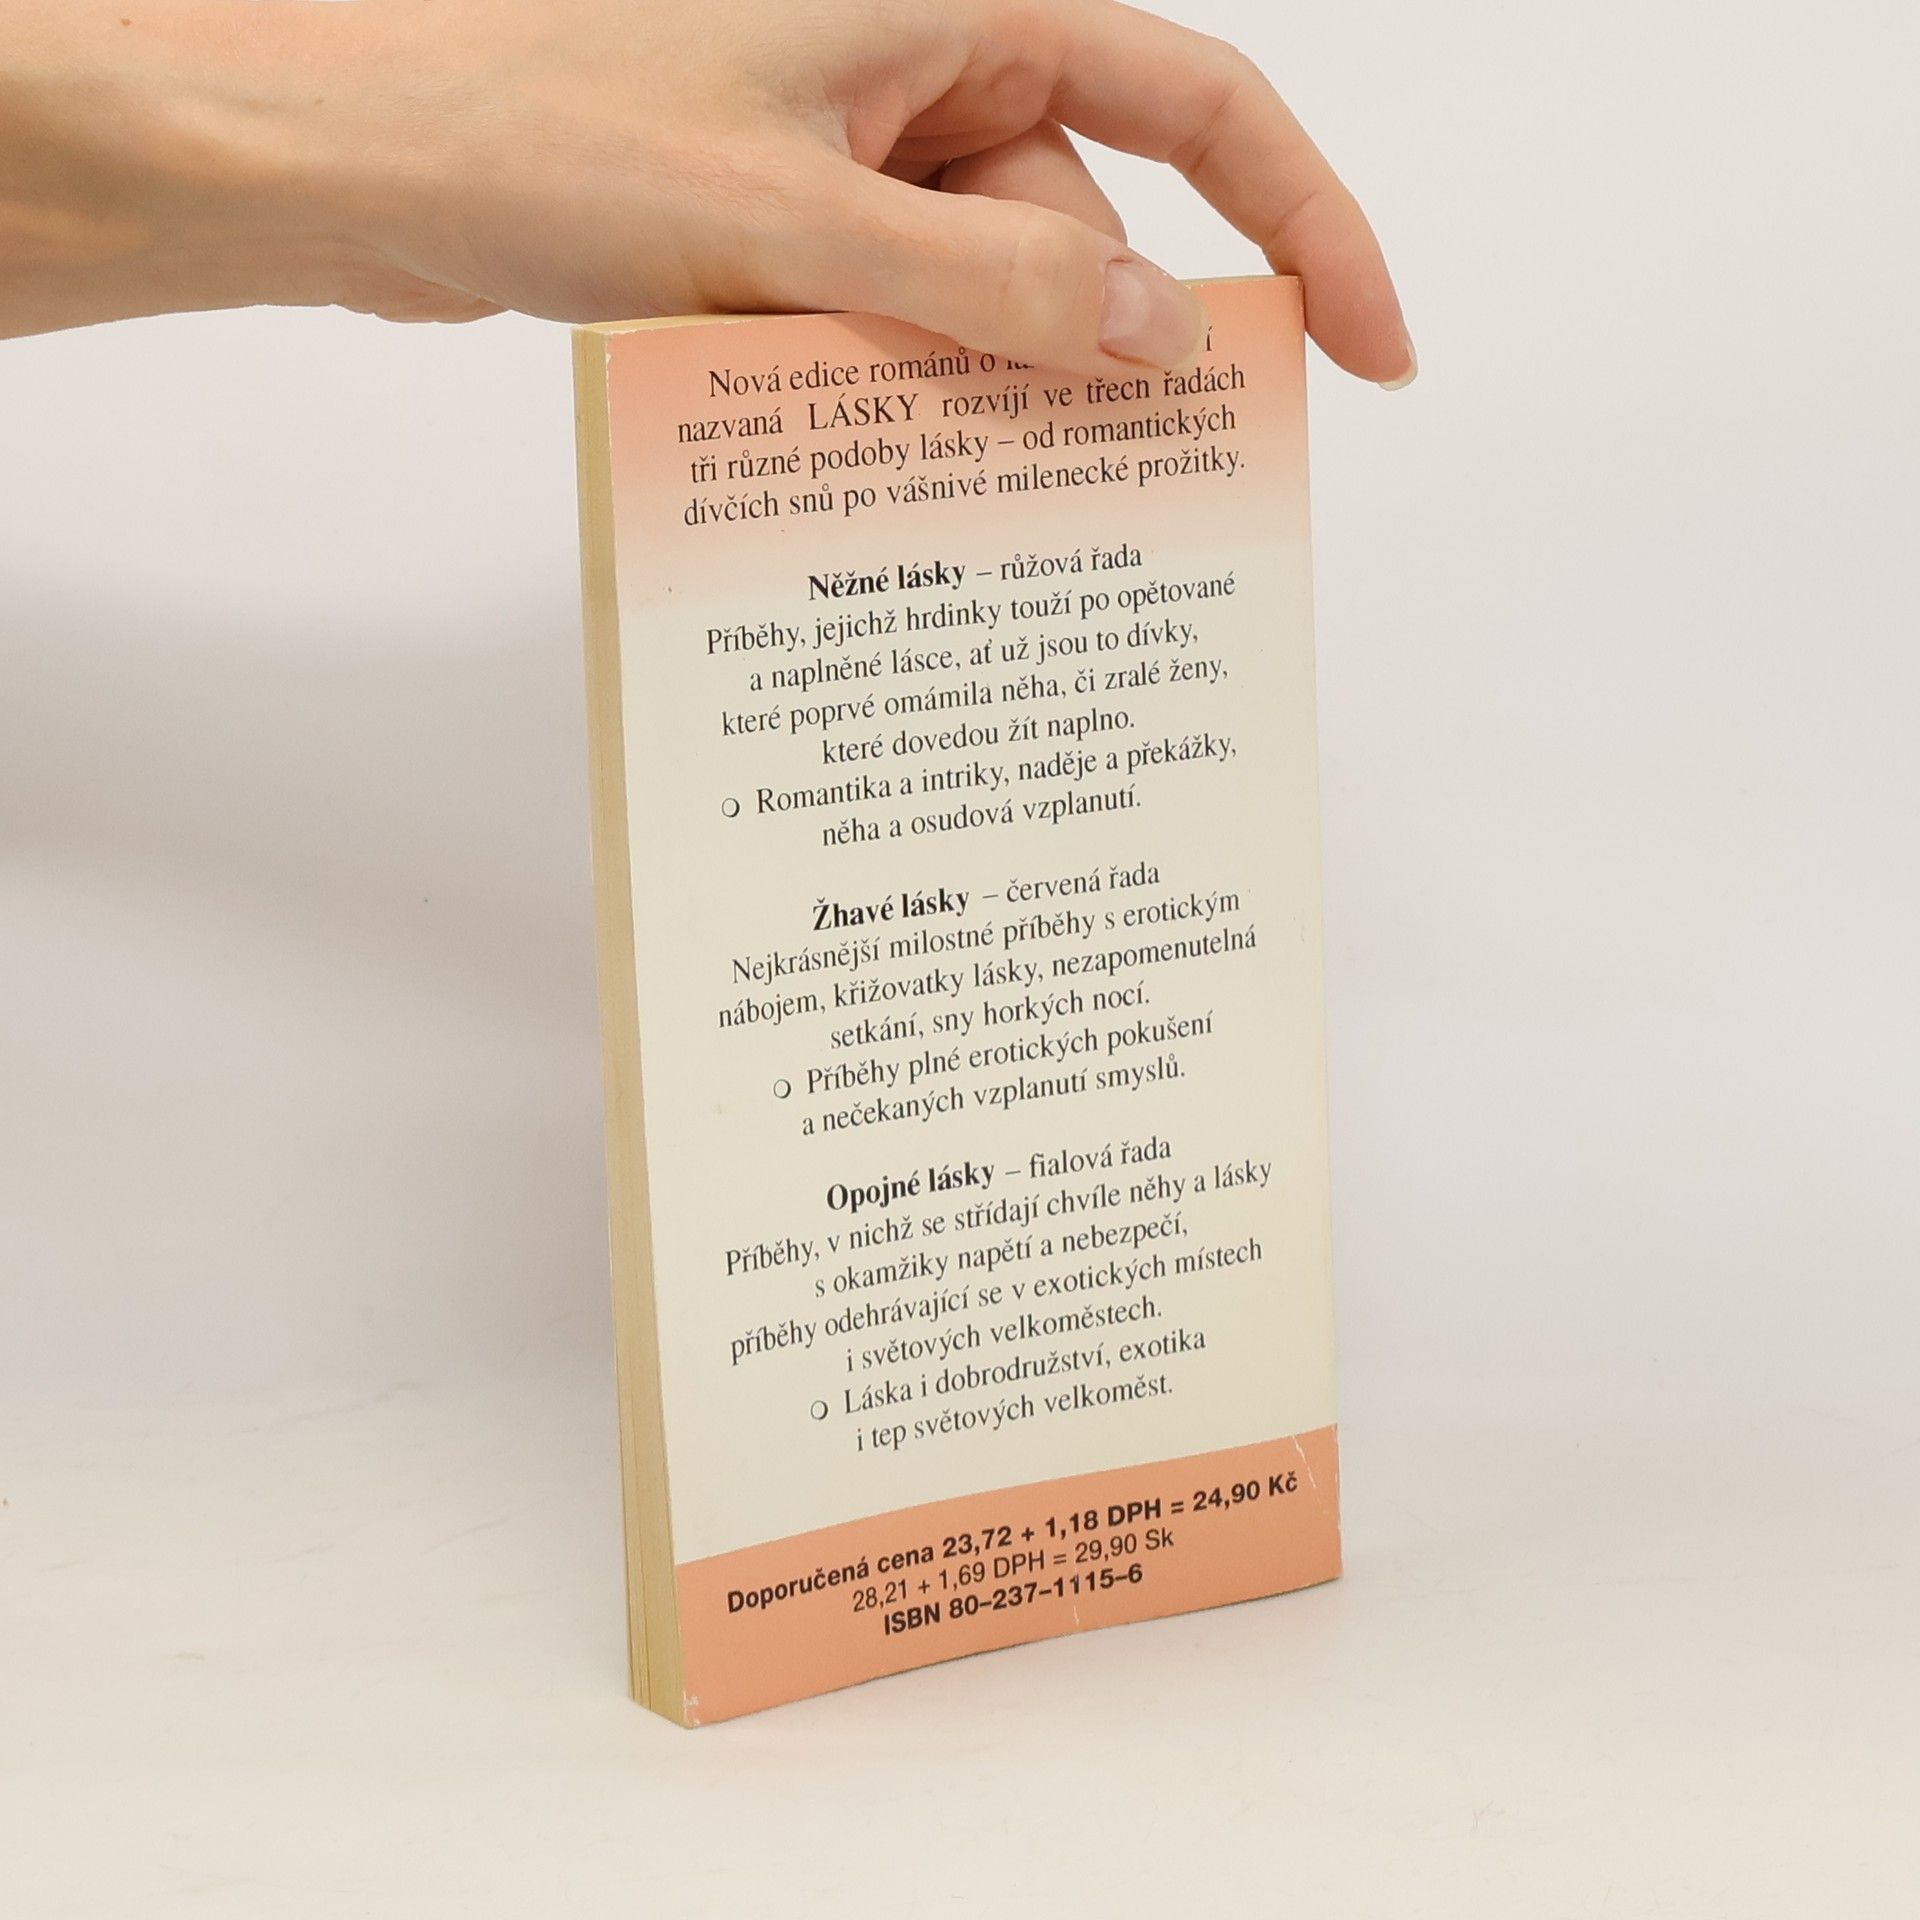 Nová edice románů o
nazvaná LÁSKY rozvíjí ve třech řadách
tři různé podoby lásky – od romantických
dívčích snů po vášnivé milenecké prožitky.
Něžné lásky – růžová řada
Příběhy, jejichž hrdinky touží po opětované
a naplněné lásce, ať už jsou to dívky,
které poprvé omámila něha, či zralé ženy,
které dovedou žít naplno.
❍ Romantika a intriky, naděje a překážky,
něha a osudová vzplanutí.
Žhavé lásky – červená řada
Nejkrásnější milostné příběhy s erotickým
nábojem, křižovatky lásky, nezapomenutelná
setkání, sny horkých nocí.
❍ Příběhy plné erotických pokušení
a nečekaných vzplanutí smyslů.
Opojné lásky – fialová řada
Příběhy, v nichž se střídají chvíle něhy a lásky
s okamžiky napětí a nebezpečí,
příběhy odehrávající se v exotických místech
i světových velkoměstech.
❍ Láska i dobrodružství, exotika
i tep světových velkoměst.
Doporučená cena 23,72 + 1,18 DPH = 24,90 Kč
28,21 + 1,69 DPH = 29,90 Sk
ISBN 80–237–1115–6